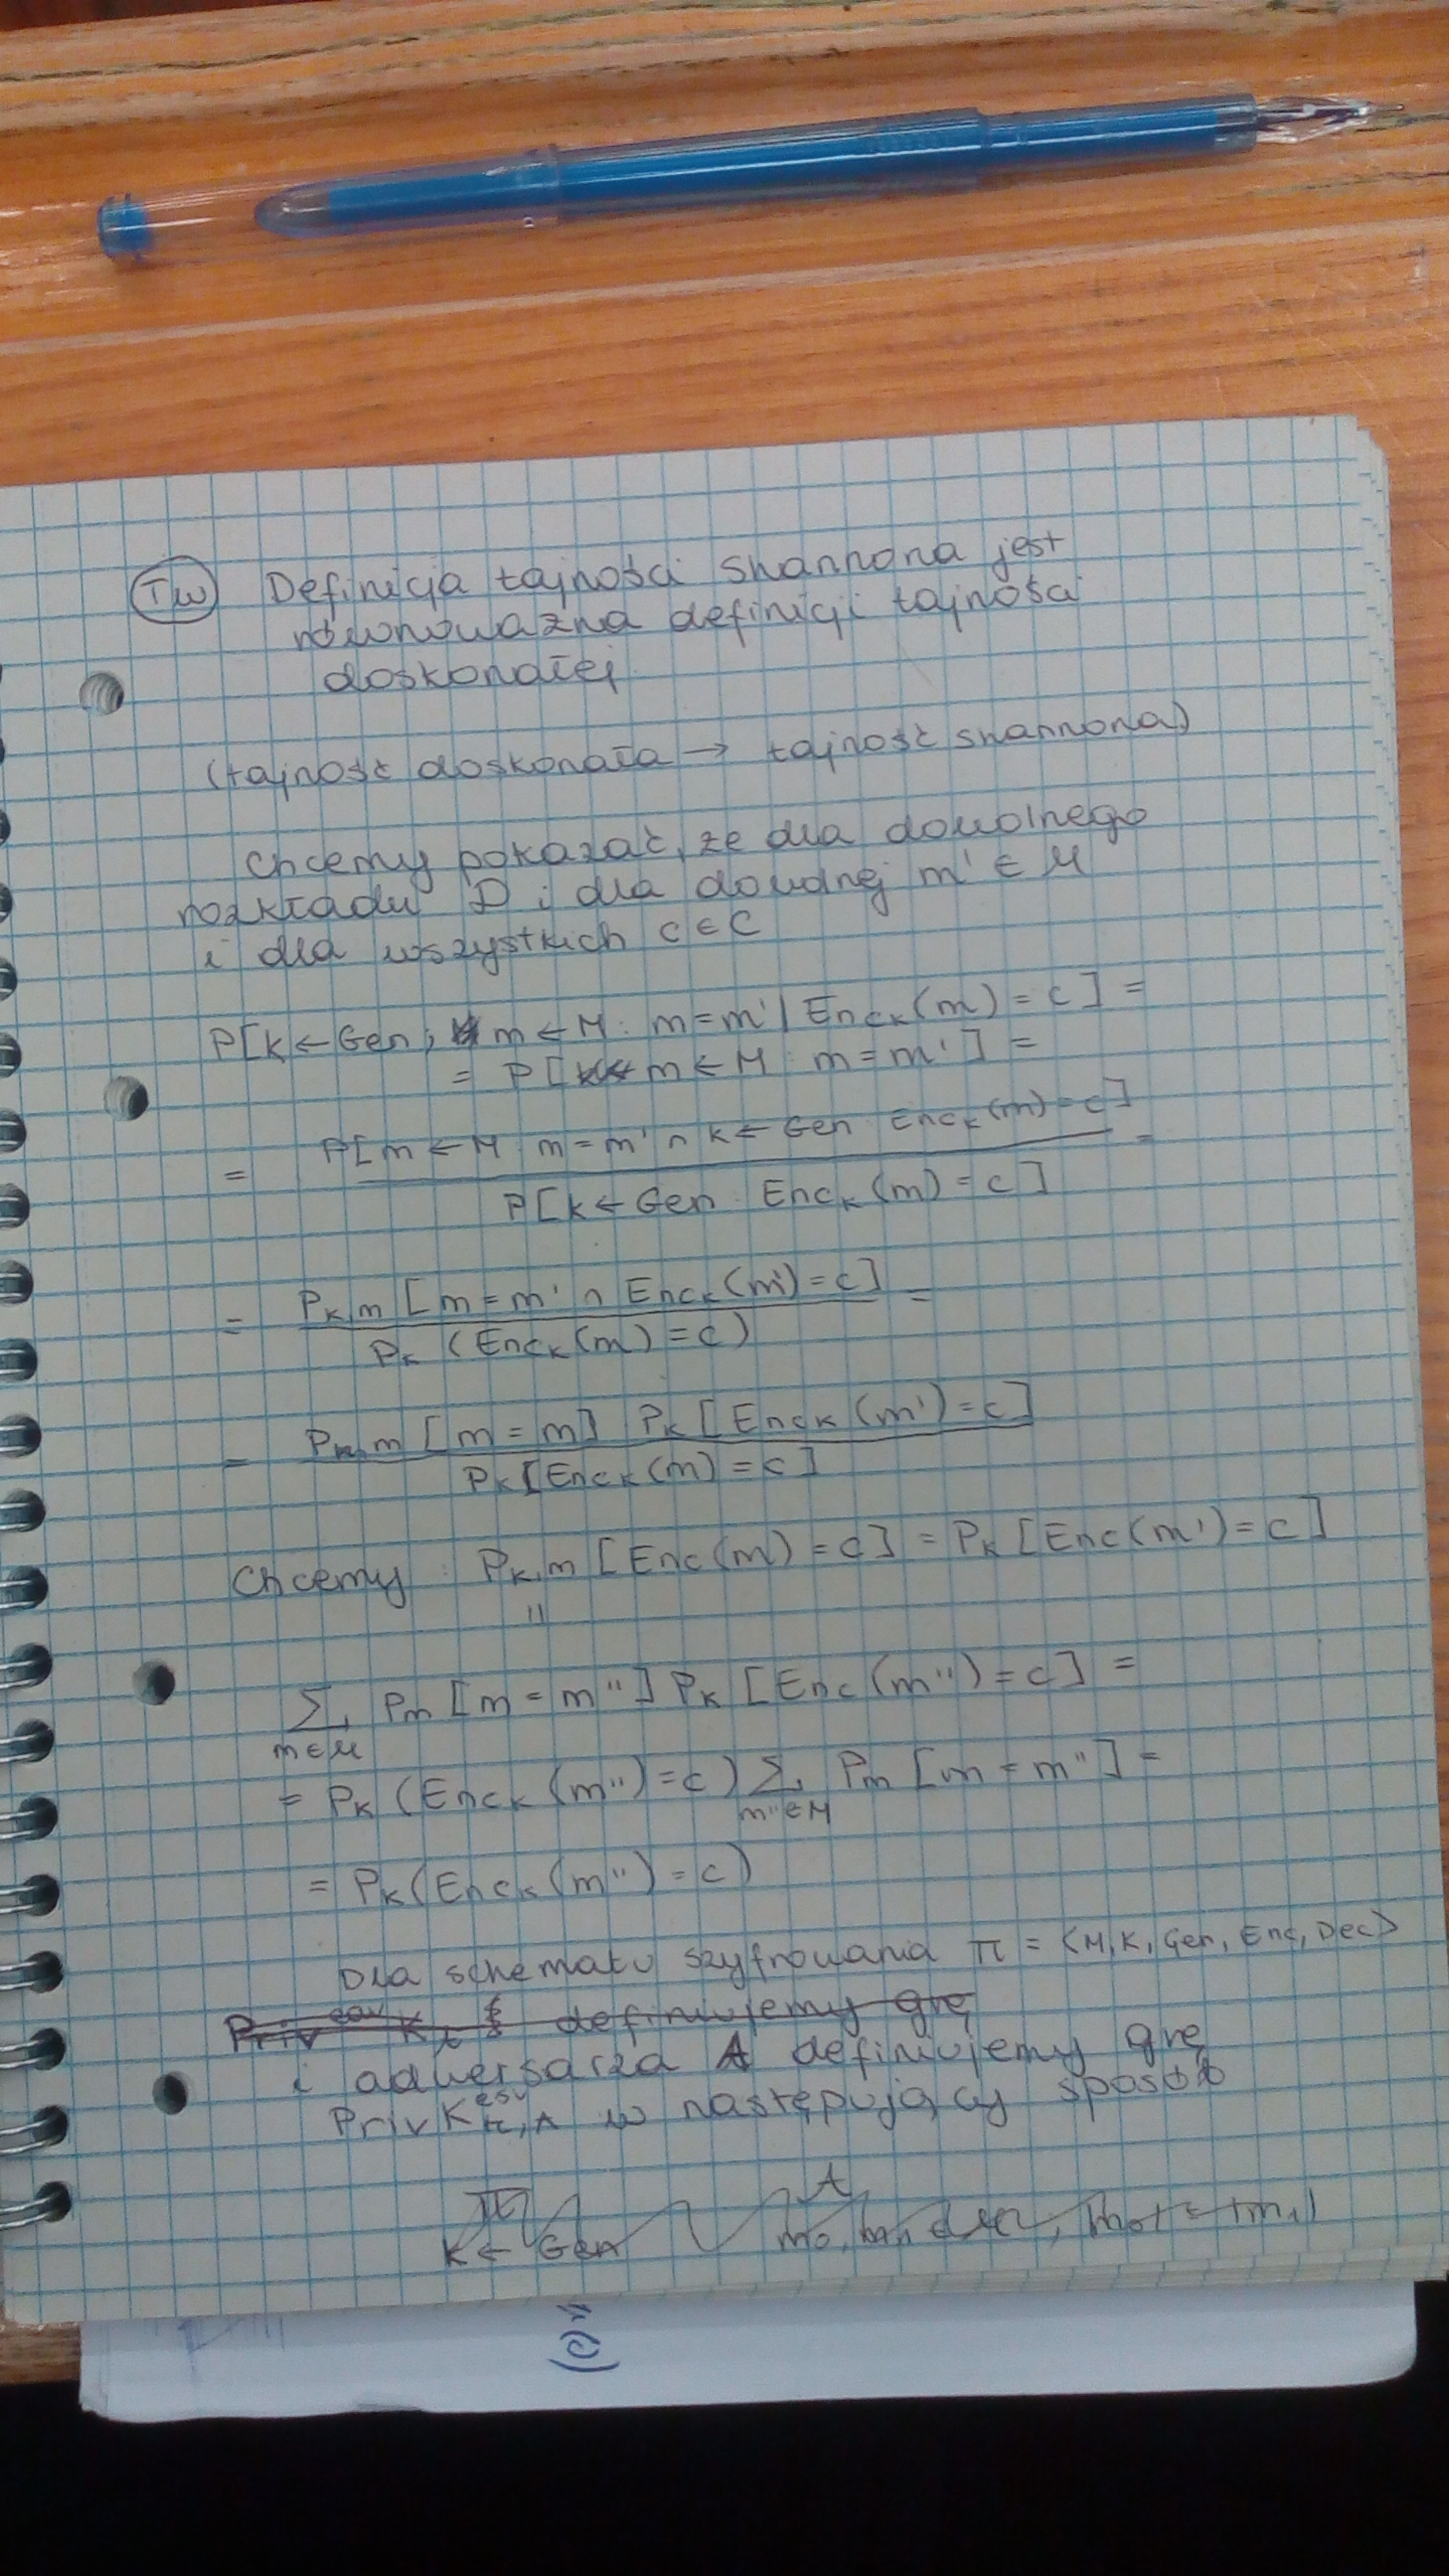 Tw Definicja tajności Shannona jest
równoważna definicji tajności
doskonałej.
(tajność doskonała → tajność shannona)
Chcemy pokazać, że dla dowolnego
rozkładu D i dla dowolnej m' ∈ M
i dla wszystkich c ∈ C
P[K ← Gen; m ← M : m = m' | Enc_K(m) = c] =
= P[m ← M : m = m'] =
= P[m ← M : m = m' ∩ K ← Gen : Enc_K(m) = c] =
P[K ← Gen : Enc_K(m) = c]
= P_K,m [m = m' ∩ Enc_K(m') = c] =
P_K (Enc_K(m) = c)
= P_m [m = m] P_K [Enc_K(m') = c]
P_K [Enc_K(m) = c]
Chcemy : P_K,m [Enc(m) = c] = P_K [Enc(m') = c]
=
Σ P_m [m = m''] P_K [Enc(m'') = c] =
m ∈ M
= P_K (Enc_K(m'') = c) Σ P_m [m = m''] =
m'' ∈ M
= P_K (Enc_K(m'') = c)
Dla schematu szyfrowania π = ⟨M, K, Gen, Enc, Dec⟩
definiujemy grę
i adwersarza A definiujemy grę
PrivK π,A w następujący sposób
π A
K ← Gen